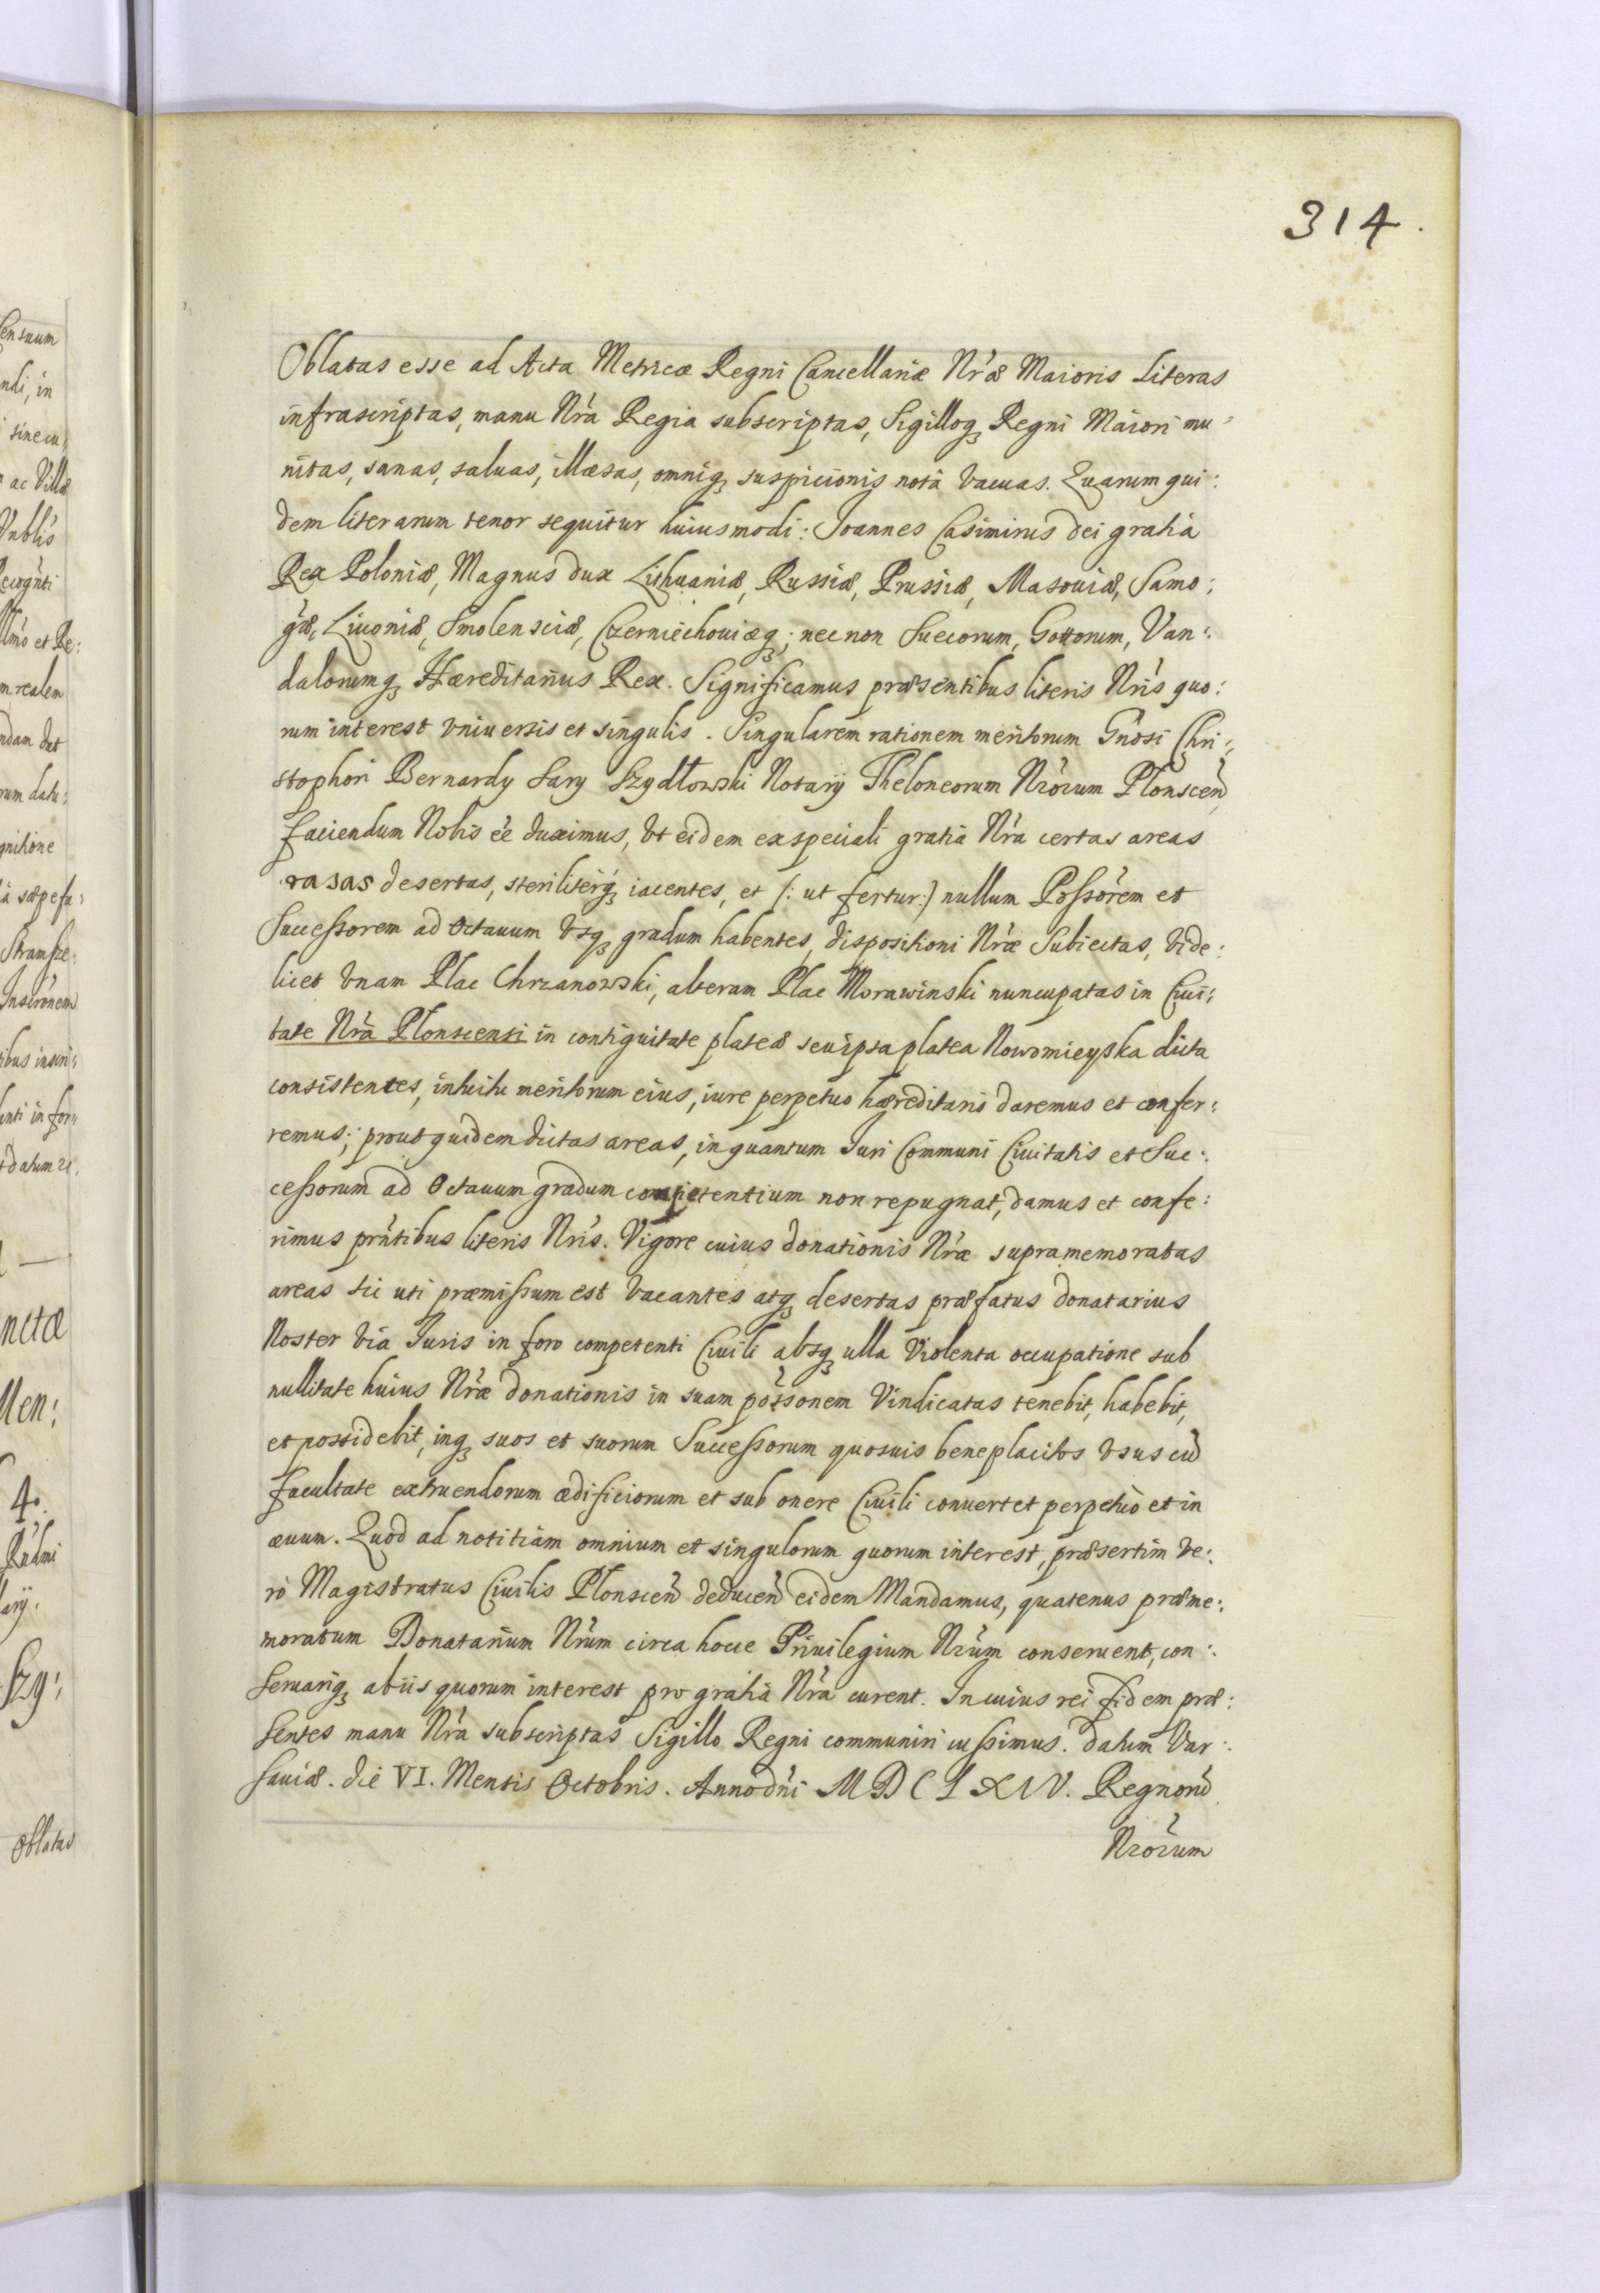 314.
Oblatas esse ad Acta Metricæ Regni Cancellariæ Nræ Maioris Literas
infrascriptas, manu Nra Regia subscriptas, Sigilloq Regni Maiori mu:
nitas, sanas, saluas, illæsas, omniq suspicionis notâ vacuas. Quarum qui:
dem literarum tenor sequitur huiusmodi: Joannes Casimirus dei gratia
Rex Poloniæ, Magnus dux Lithuaniæ, Russiæ, Prussiæ, Masouiæ, Samo:
gæ, Liuoniæ, Smolensciæ, Czerniechouiæq; nec non Suecorum, Gottorum, Van:
dalorumq Hæreditarius Rex. Significamus præsentibus literis Nris quo:
rum interest vniuersis et singulis. Singularem rationem meritorum Gnosi Chri:
stophori Bernardy Sary Szydłowski Notarij Theloneorum Nrorum Plonscen
faciendum Nobis ee duximus, vt eidem ex speciali gratia Nra certas areas
rasas desertas, steriliterq iacentes, et (: ut fertur:) nullum Possorem et
Successorem ad Octauum vsq gradum habentes, dispositioni Nræ Subiectas, vide:
licet vnam Plac Chrzanowski, alteram Plac Morawinski nuncupatas in Ciui:
tate Nra Plonscensi in contiguitate plateæ seu ipsa platea Nowomieyska dicta
consistentes, intuitu meritorum eius, iure perpetuo hæreditario daremus et confer:
remus; prout quidem dictas areas, in quantum Juri Communi Ciuitatis et Suc:
cessorum ad Octauum gradum competentium non repugnat, damus et confe:
rimus prntibus literis Nris. Vigore cuius donationis Nræ supramemoratas
areas sic uti præmissum est vacantes atq desertas præfatus donatarius
Noster via Juris in foro competenti Ciuili absq ulla violenta occupatione sub
nullitate huius Nræ donationis in suam possonem vindicatas tenebit, habebit,
et possidebit, inq suos et suorum Successorum quosuis beneplacitos vsus cu
facultate extruendorum ædificiorum et sub onere Ciuili conuertet perpetuò et in
æuum. Quod ad notitiam omnium et singulorum quorum interest, præsertim ve:
rò Magistratus Ciuilis Plonscen deducen eidem Mandamus, quatenus præme:
moratum Donatarium Nrum circa hocce Priuilegium Nrum conseruent, con:
seruariq ab iis quorum interest pro gratia Nra curent. In cuius rei fidem præ:
sentes manu Nra subscriptas Sigillo Regni communiri iussimus. datum Var:
sauiæ. die VI. Mensis Octobris. Anno dni MDCLXIV. Regnoru
Nrorum